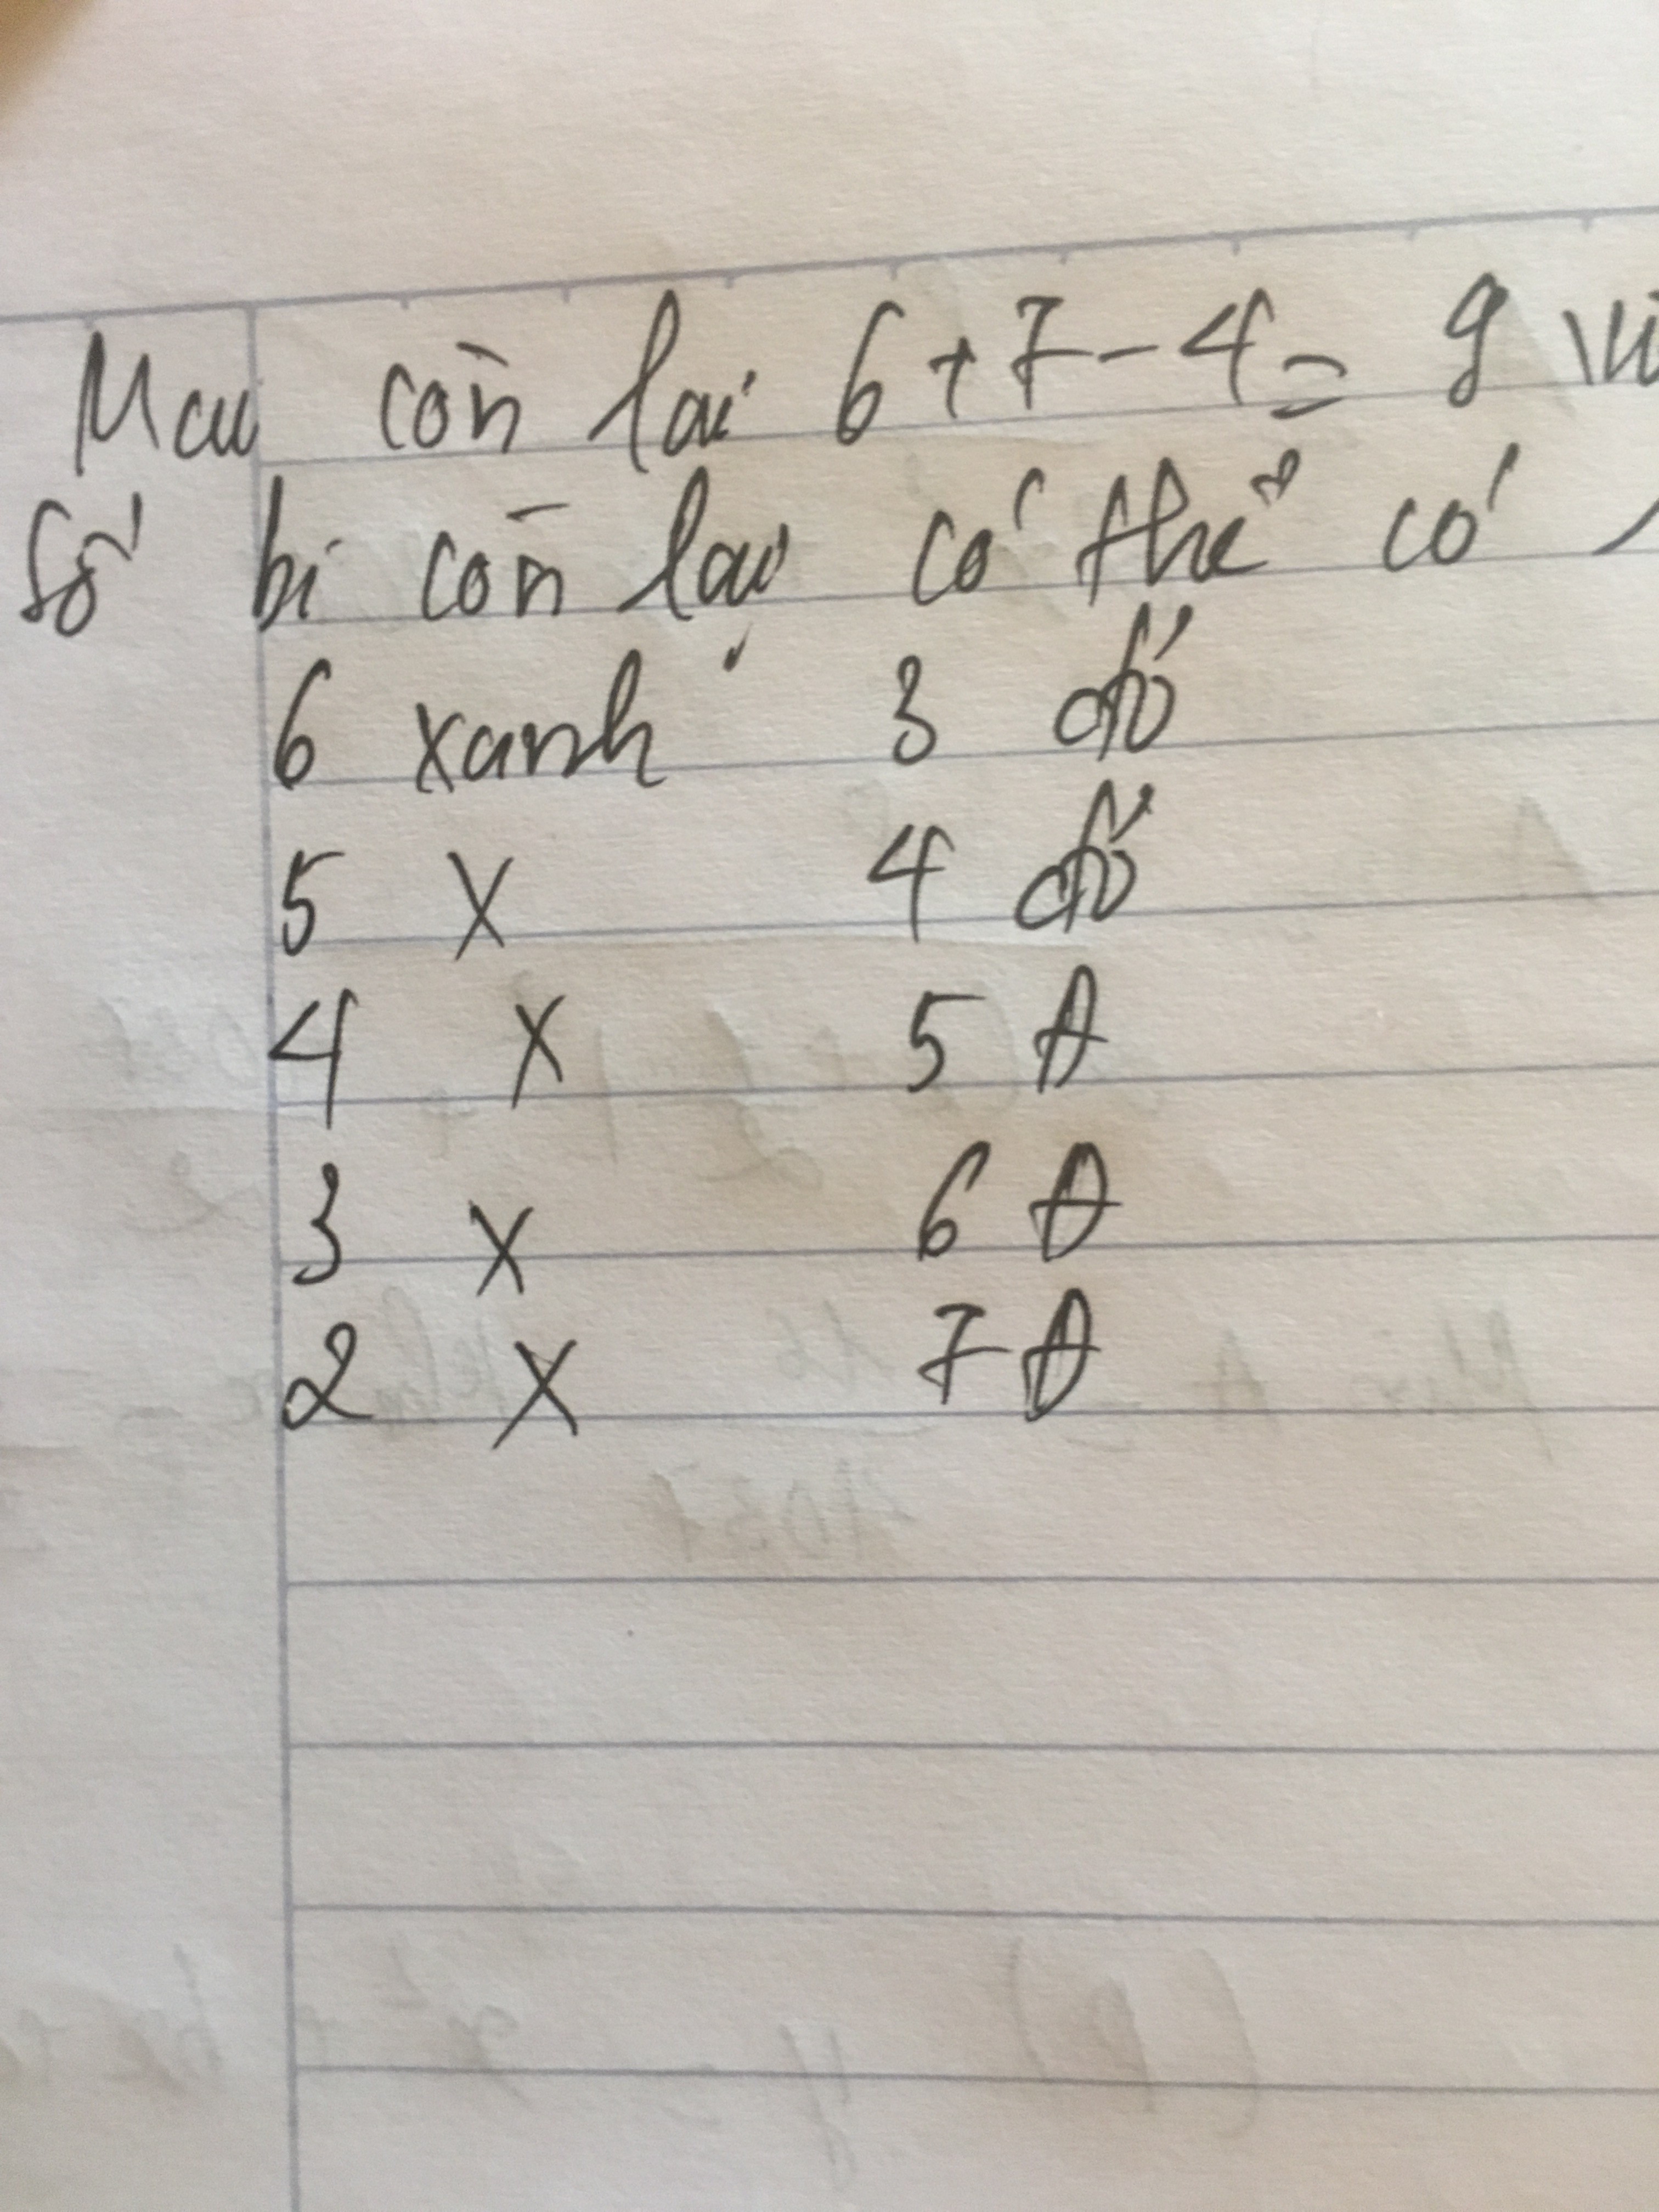 Mai còn lại 6 + 7 - 4 = 9 vi
Số bi còn lại có thể có
6 xanh 3 đỏ
5 X 4 đỏ
4 X 5 Đ
3 X 6 Đ
2 X 7 Đ